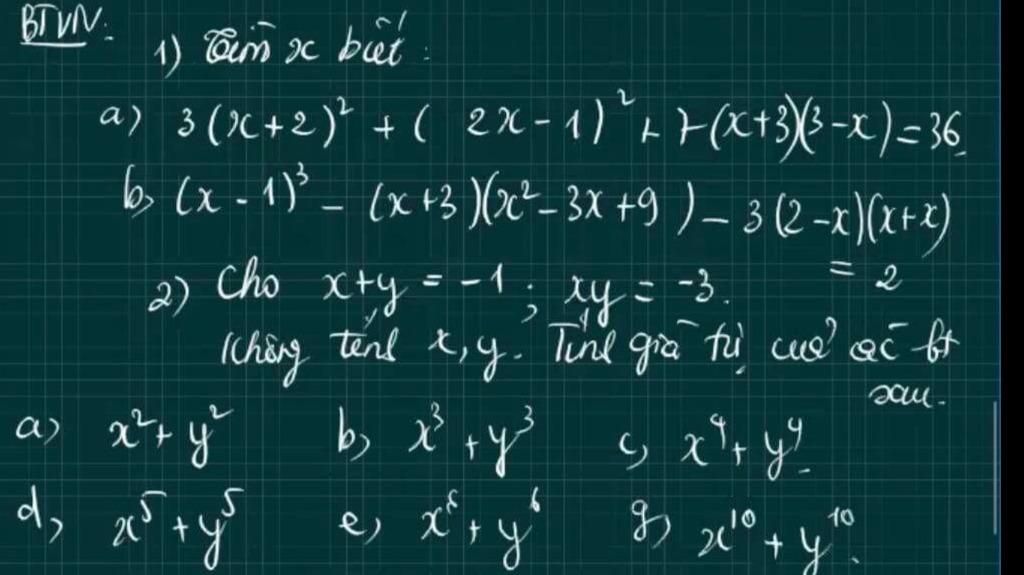 BTVN:
1) Tìm x biết :
a) 3(x+2)² + ( 2x-1)² + 7-(x+3)(3-x)=36
b) (x-1)³ - (x+3)(x²-3x+9) - 3(2-x)(x+x)
= 2
2) Cho x+y = -1 ; xy = -3.
Không tính x,y. Tính giá trị của các bt
sau.
a) x²+y² b) x³+y³ c) x⁴+y⁴
d) x⁵+y⁵ e) x⁶+y⁶ g) x¹⁰+y¹⁰.